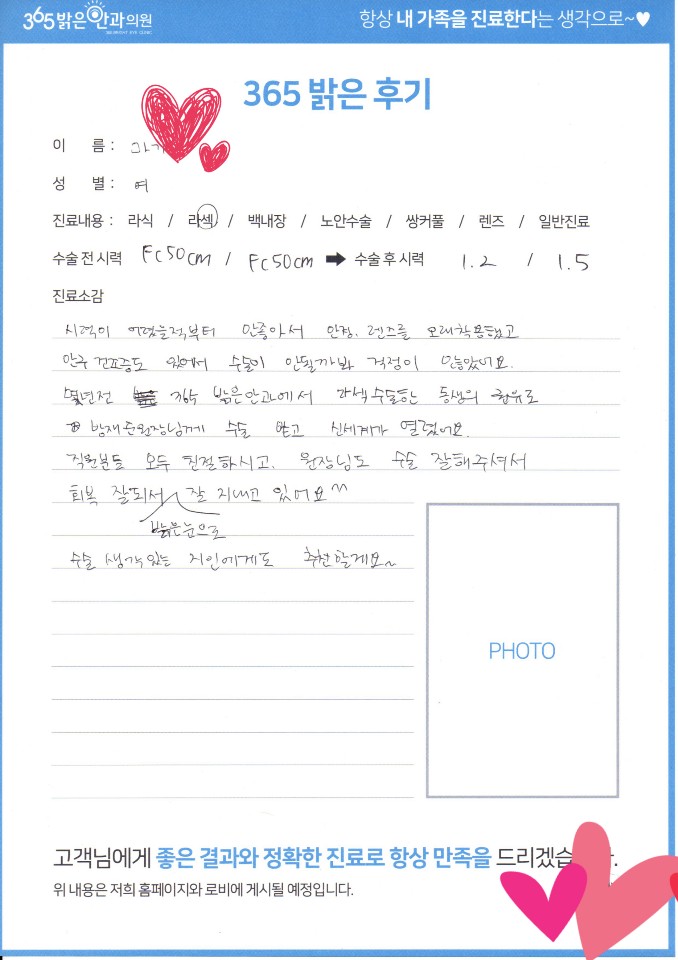 365밝은안과의원
365 BRIGHT EYE CLINIC
항상 내 가족을 진료한다는 생각으로~♥
365 밝은 후기
이 름 :
성 별 : 여
진료내용 : 라식 / 라섹 / 백내장 / 노안수술 / 쌍커풀 / 렌즈 / 일반진료
수술 전 시력 FC50cm / FC50cm ➡ 수술 후 시력 1.2 / 1.5
진료소감
시력이 어렸을적부터 안좋아서 안경, 렌즈를 오래착용했고
안구 건조증도 있어서 수술이 안될까봐 걱정이 많았었어요.
몇년전 밝은안과에서 라섹수술한 동생의 권유로
방재준원장님께 수술 받고 신세계가 열렸어요.
직원분들 모두 친절하시고, 원장님도 수술 잘해주셔서
회복 잘되서 잘 지내고 있어요^^
밝은눈으로
수술 생각있는 지인에게도 추천할게요~
PHOTO
고객님에게 좋은 결과와 정확한 진료로 항상 만족을 드리겠습
위 내용은 저희 홈페이지와 로비에 게시될 예정입니다.